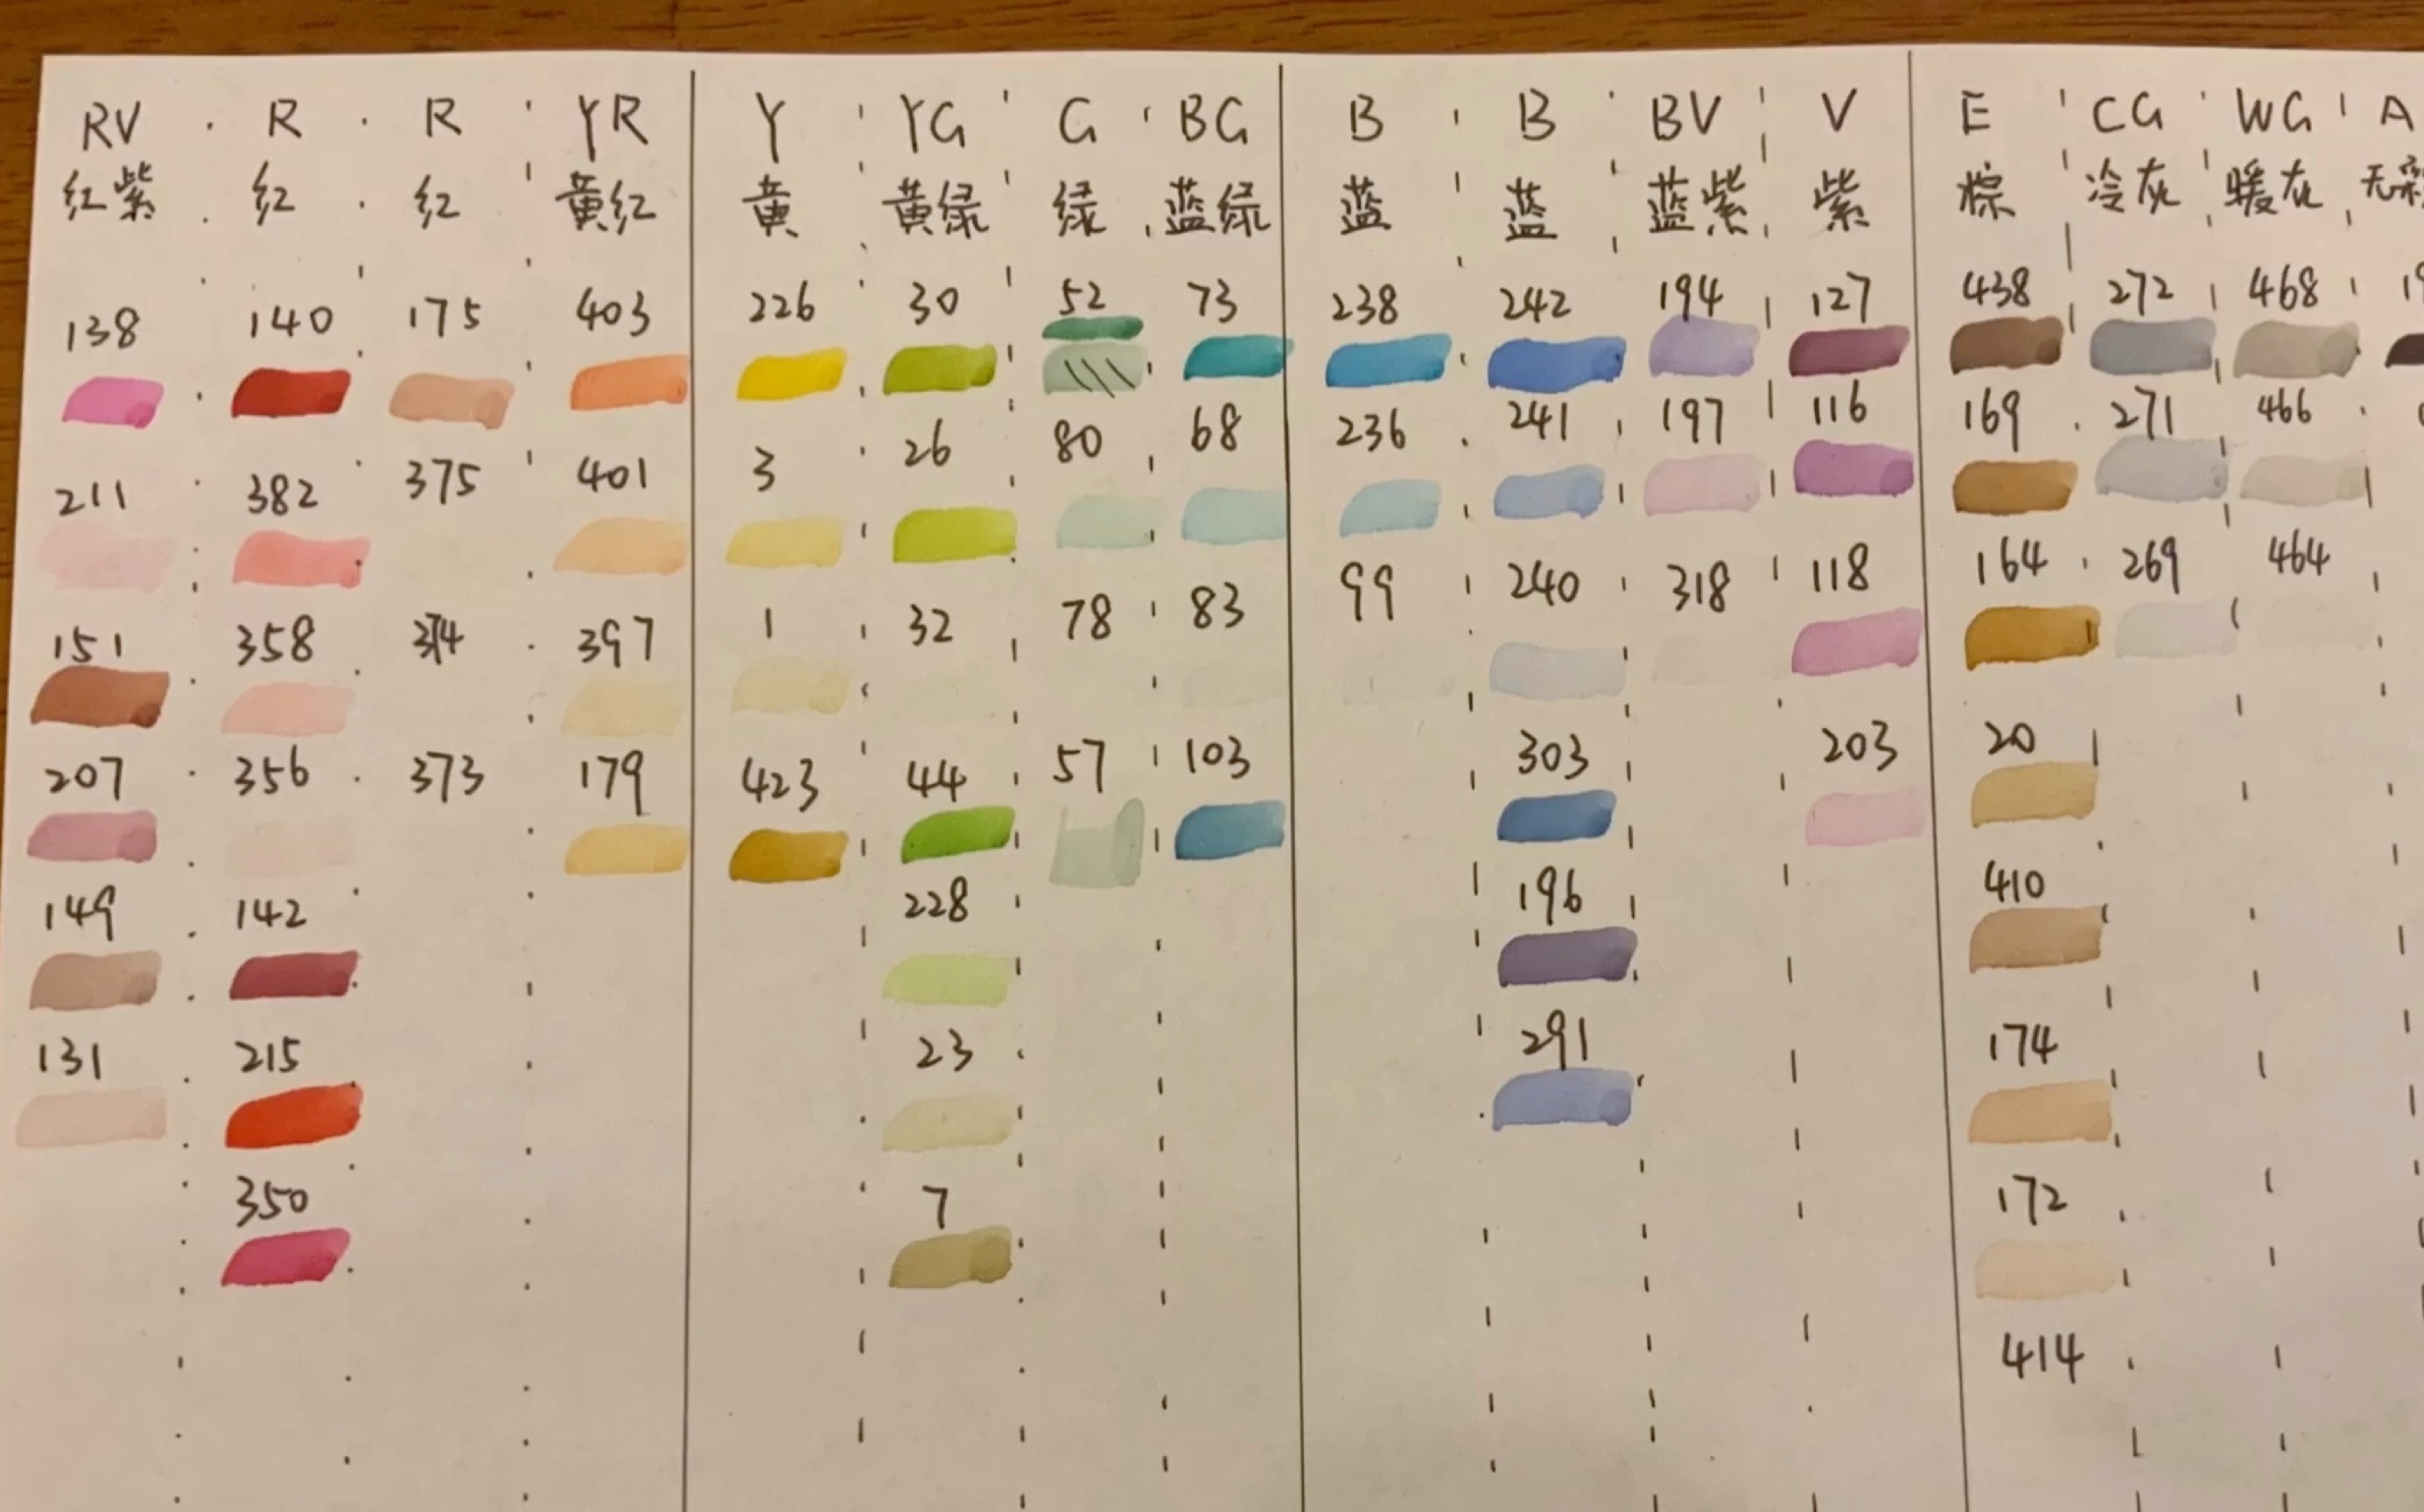 RV R R YR Y YG G BG B B BV V E CG WG A
红紫 红 红 黄红 黄 黄绿 绿 蓝绿 蓝 蓝 蓝紫 紫 棕 冷灰 暖灰 无
138 140 175 403 226 30 52 73 238 242 194 127 438 272 468
211 382 375 401 3 26 80 68 236 241 197 116 169 271 466
151 358 374 397 1 32 78 83 99 240 318 118 164 269 464
207 356 373 179 423 44 57 103 303 203 20
149 142 228 196 410
131 215 23 291 174
350 7 172
414